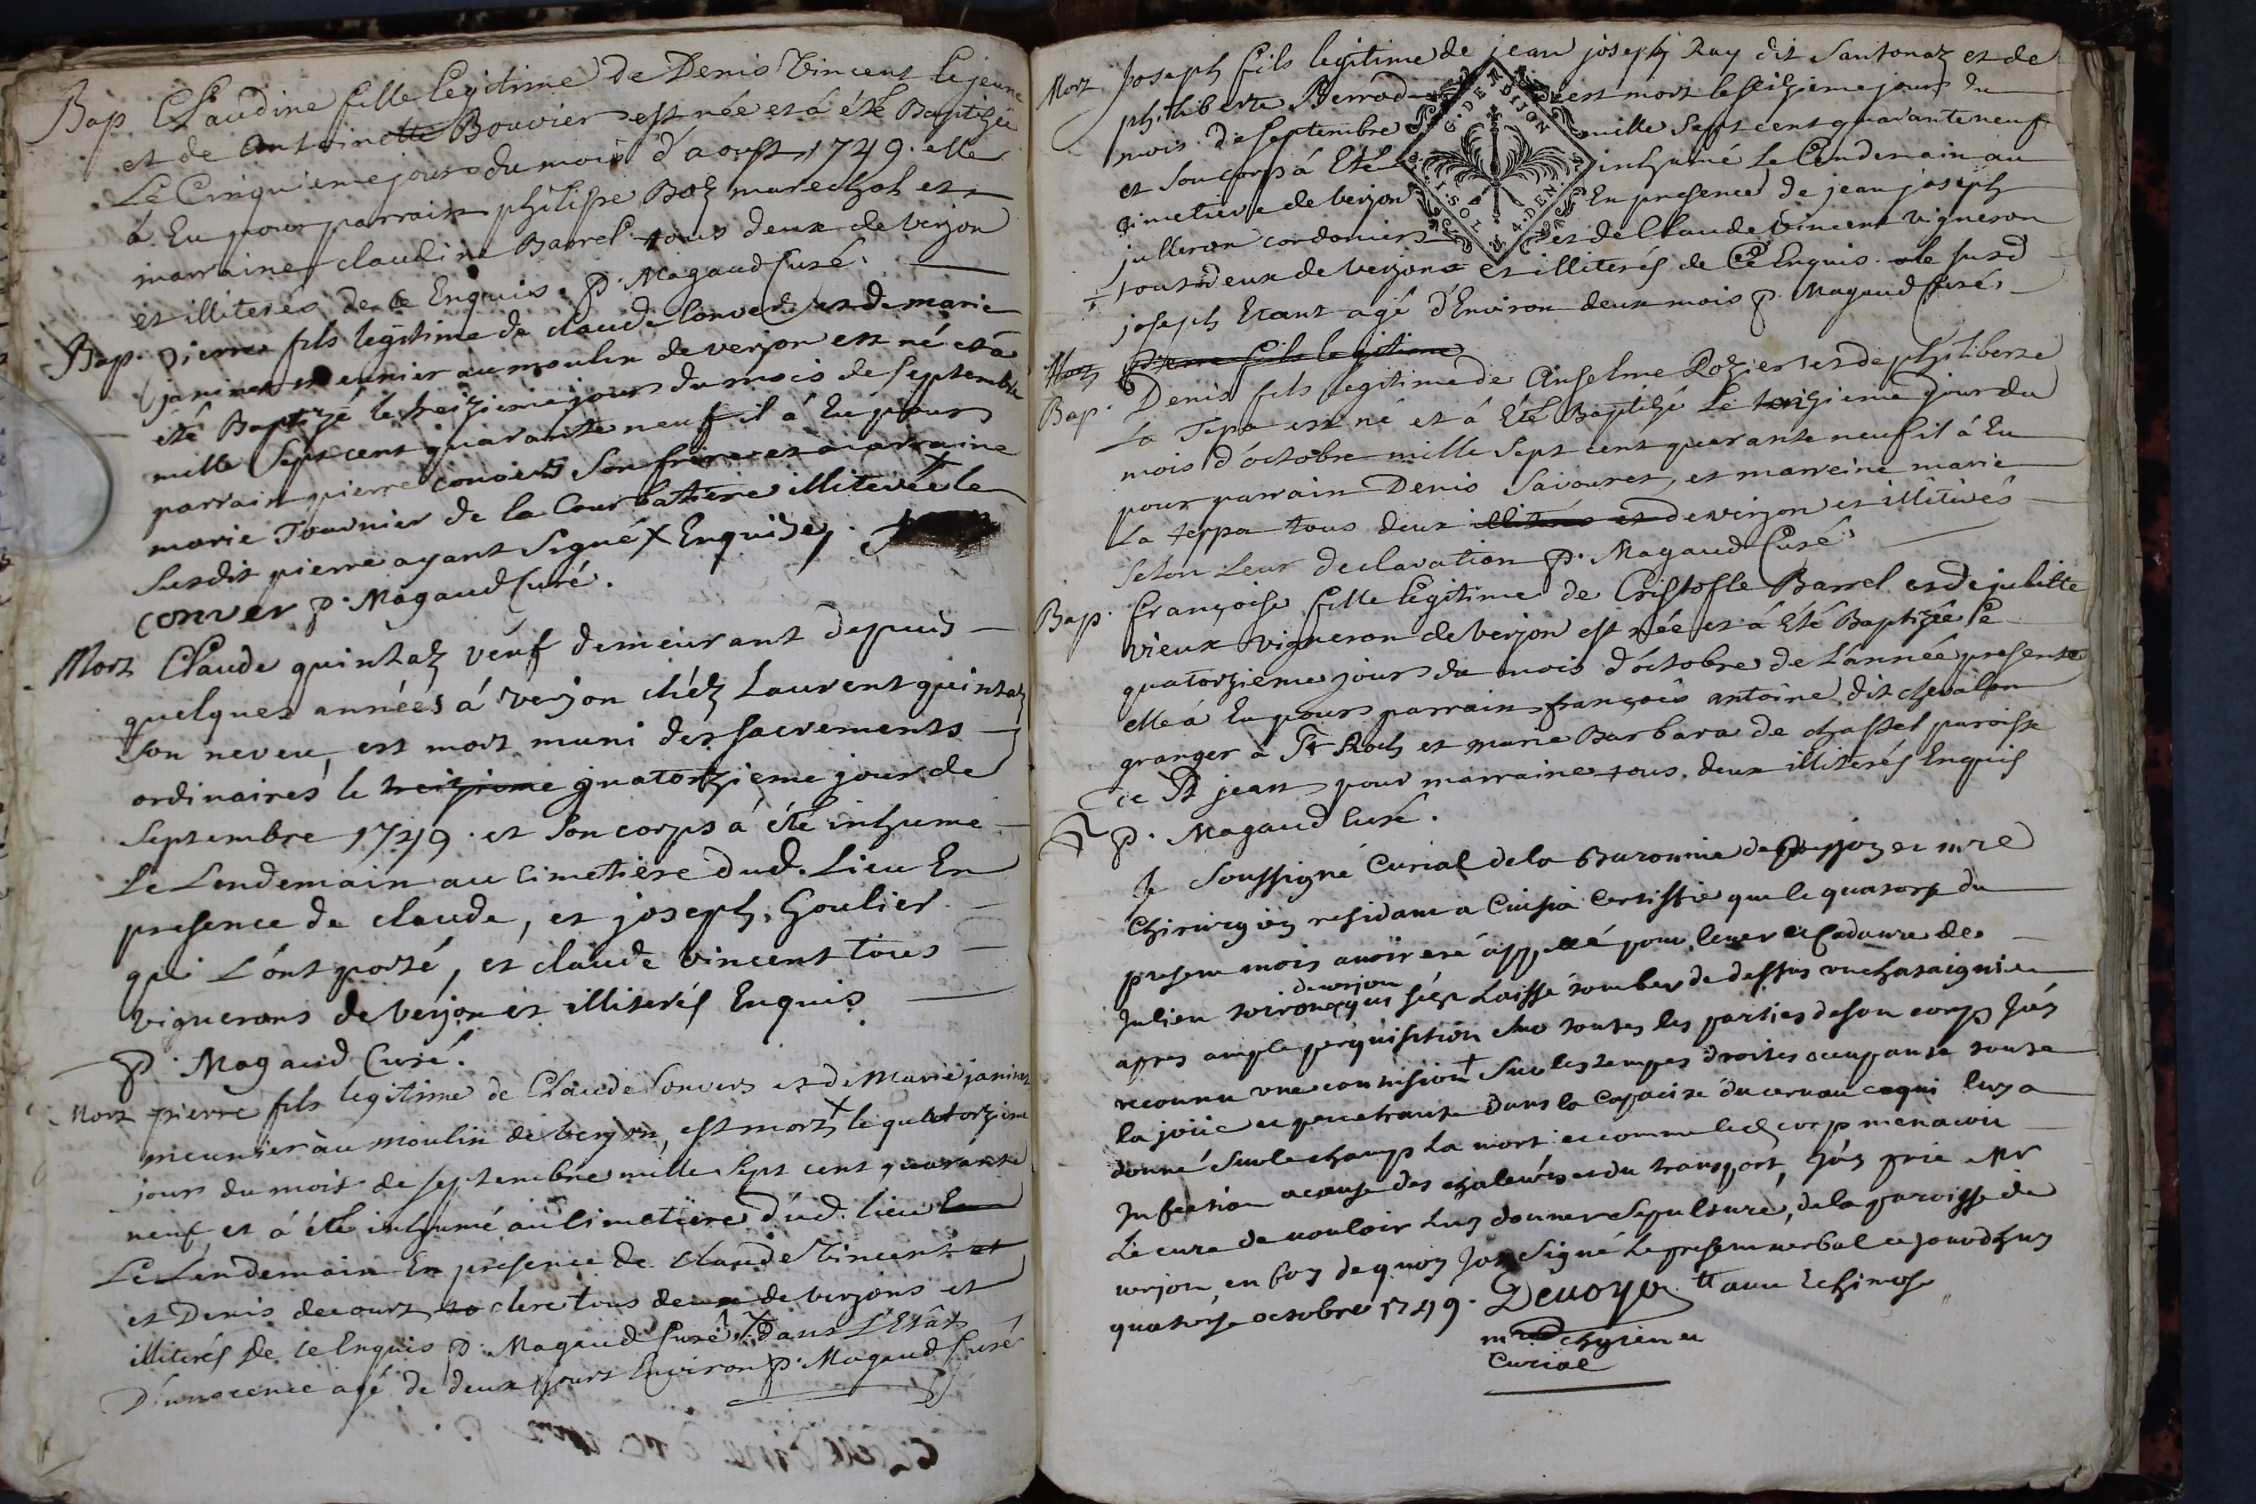 Bap Claudine fille legitime de Denis Vincent le jeune
et de Antoinette Bouvier est née et á été Baptizée
Le Cinquieme jour du mois d'aoust 1749. elle
á Eu pour parrain philippe Boz marechal et
marraine claudine Barrel tous deux de verjon
et illiterés de ce Enquis. P. Magaud Curé.
Bap. Pierre fils legitime de claude Convers et de marie
janinet meunier au moulin de verjon est né et à
été Baptizé le treizieme jour du mois de septembre
mille sept cent quarante neuf il á Eu pour
parrain pierre convers son frere et marraine
marie Tournier de la Courbatiere illiterée le
susdit pierre ayant signé X Enquise,.
conver P. Magaud Curé.
Mort Claude quintaz véuf demeurant depuis
quelques années á verjon chéz Laurent quintaz
son neveu, est mort muni des sacrements
ordinaires le treizieme quatorzieme jour de
Septembre 1749. et son corps á été inhumé
Le Lendemain au cimetiere dud. Lieu En
presence de claude, et joseph Goulier
qui L'ont porté, et claude vincent tous
vignerons de verjon et illiterés Enquis
P. Magaud Curé.
Mort pierre fils legitime de Claude Convers et de Marie janinet
meunier àu moulin de verjon, est mort X le quatorzieme
jour du mois de septembre mille sept cent quarante
neuf et á été inhumé au cimetiere dud. lieu En
Le Lendemain En presence de claude Vincent et
et Denis decourt clerc tous deux de verjons et
illiterés de ce Enquis P. Magaud Curé X dans L'Etât
D'innocence agé de deux jours Environ P. Magaud Curé
Mort Joseph fils legitime de jean joseph Ray dit Santonaz et de
philiberte Berrod est mort le seizieme jour du
mois de septembre mille sept cent quarante neuf
et son corps á Eté inhumé Le Lendemain au
cimetiere de verjon En presence de jean joseph
julleron cordonier et de Claude Vincent vigneron
tous deux de verjon et illiterés de Ce Enquis. le susd
joseph Etant agé d'Environ deux mois P. Magaud Curé.
G. DE M DIJON
1. SOL 4. DEN.
Mort Pierre fils legitime
Bap. Denis fils legitime de Anselme Rozier et de philiberte
La Tepa est né et á Eté Baptizé Le treizieme jour du
mois d'octobre mille sept cent quarante neuf il á Eu
pour parrain Denis Savouret, et marreine marie
La teppa tous deux illiterés et de verjon et illiterés
selon Leur declaration P. Magaud Curé.
Bap. françoise fille légitime de Cristofle Barrel et de juliette
vieux vigneron de verjon est née et á Eté Baptizée le
quatorzieme jour du mois d'octobre de L'année presente
elle á Eu pour parrain françois antoine dit chevalon
granger à St Roch et marie Barbara de chassel paroisse
de St jean pour marraine tous deux illiterés Enquis
P. Magaud Curé.
Je Soussigné Curial de la Baronnie de et mre
Chirurgien residant a Cuisia Certiffie que le quatorze du
present mois auoir eté appellé pour leuer le Cadaure de
Julien qui s'éz Laissé tomber de dessus vn chataignier
de verjon
apres ample perquisition sur toutes les parties de son corp Jáy
reconnu vne contusion + Sur les tempes droites occupante toute
la joüe et penetrante dans la Capacité du cerueau ce qui luy a
donné Sur le champ La mort et comme led corp menacoit
Infection a cause des chaleurs et du transport, Jáy prié Mr
Le curé de uouloir luy donner sepulture, de la paroisse de
uerjon, en foy de quoy Jay Signé Le present uerbal ce jourdhuy
quatorze octobre 1749. Deuoyo tt auec Echimose
mre chgien et
Curial